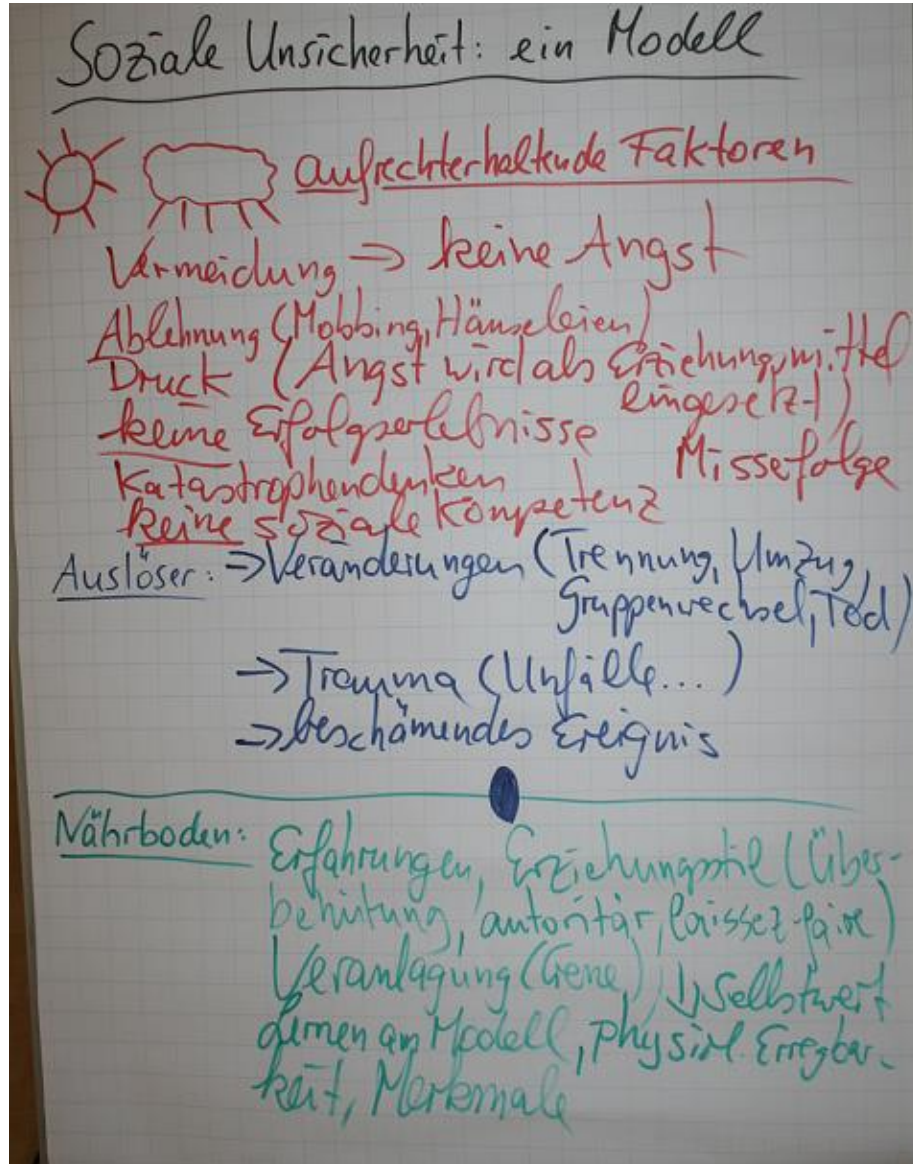 Soziale Unsicherheit: ein Modell
aufrechterhaltende Faktoren
Vermeidung => keine Angst
Ablehnung (Mobbing, Hänseleien)
Druck (Angst wird als Erziehungsmittel
eingesetzt)
keine Erfolgserlebnisse
Missefolge
Katastrophendenken
keine soziale Kompetenz
Auslöser: => Veränderungen (Trennung, Umzug,
Gruppenwechsel, Tod)
=> Trauma (Unfälle...)
=> beschämendes Ereignis
Nährboden: Erfahrungen, Erziehungsstil (Über-
behütung, autoritär, laissez-faire)
Veranlagung (Gene), ↓ Selbstwert
Lernen am Modell, physiol. Erregbar-
keit, Merkmale